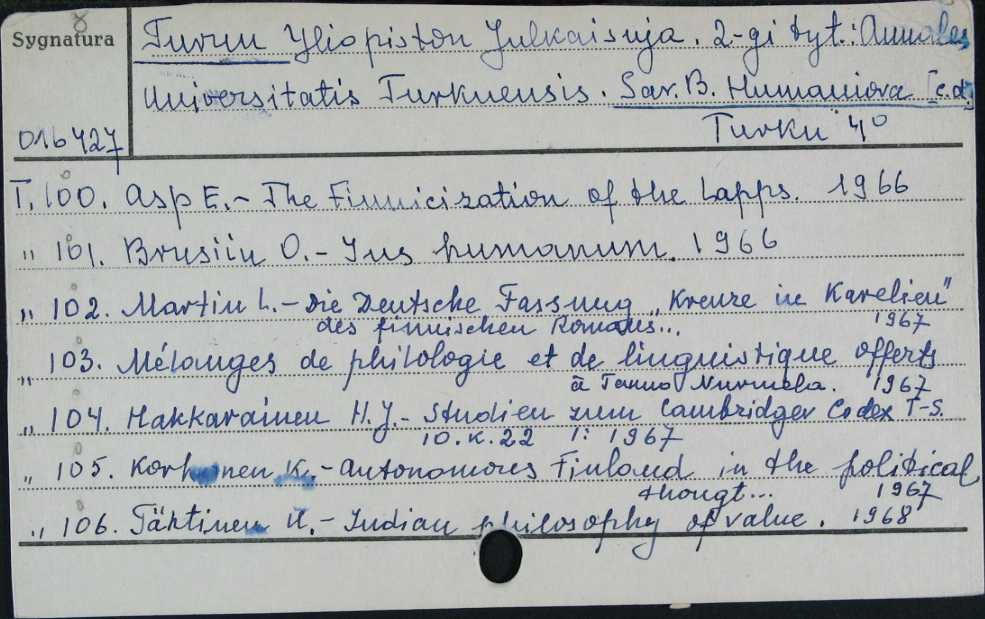 Sygnatura
Turun Yliopiston Julkaisuja. 2-gi tyt.: Annales
Universitatis Turkuensis. Sar. B. Humaniora [c.d.]
016427
Turku 4°
T. 100. Asp E. - The Finnicization of the Lapps. 1966
" 101. Brusiin O. - Ius humanum. 1966
" 102. Martin L. - Die Deutsche Fassung "Kreuze in Karelien"
des finnischen Romans... 1967
" 103. Mélanges de philologie et de linguistique offerts
à Tauno Nurmela. 1967
" 104. Hakkarainen H.J. - Studien zum Cambridger Codex T-S.
10. K. 22 1: 1967
" 105. Korhonen K. - Autonomous Finland in the political
thougt... 1967
" 106. Tähtinen U. - Indian philosophy of value. 1968